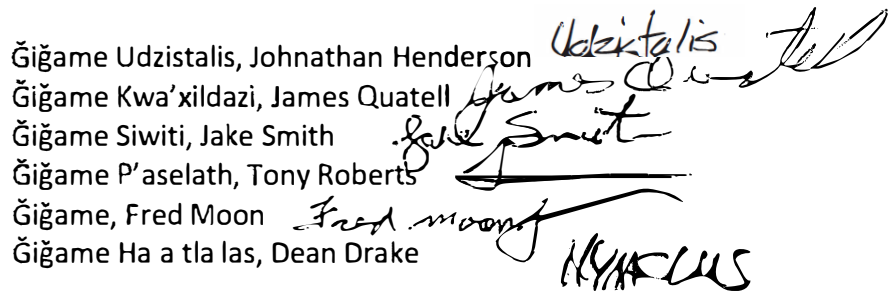 Ǧiǧame Udzistalis, Johnathan Henderson Udzistalis
Ǧiǧame Kwa’xildazi, James Quatell James Quatell
Ǧiǧame Siwiti, Jake Smith Jake Smith
Ǧiǧame P’aselath, Tony Roberts
Ǧiǧame, Fred Moon Fred moon
Ǧiǧame Ha a tla las, Dean Drake